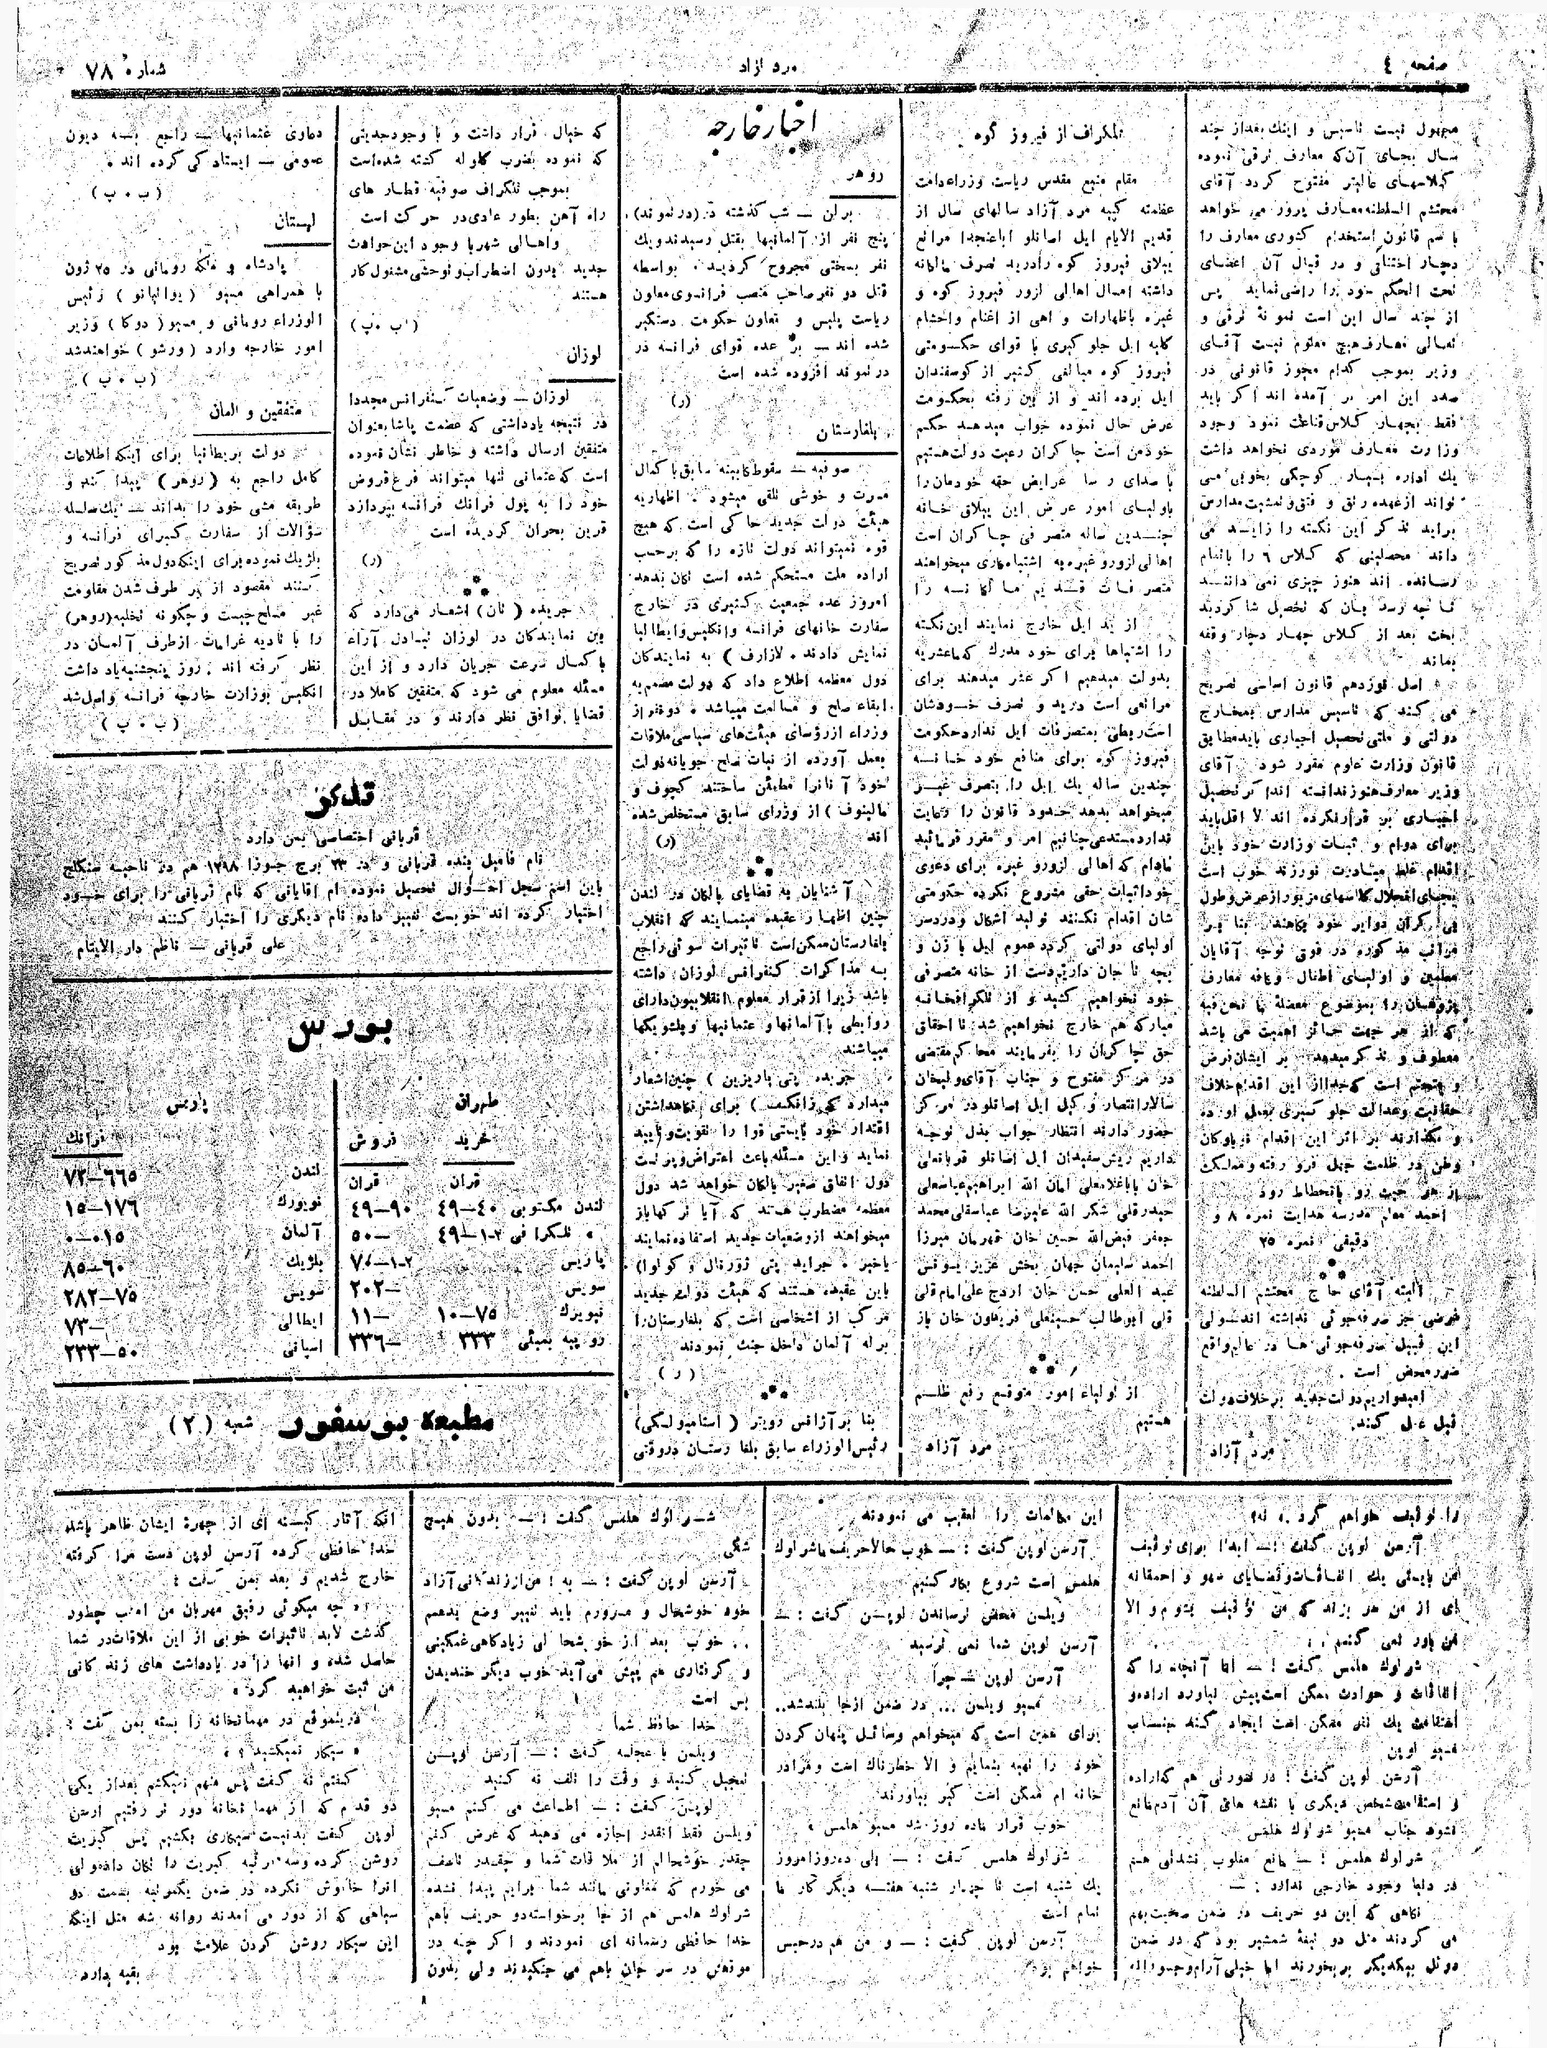 صفحه ٤
مرد آزاد
شماره ۷۸
مجهول نیست تاسیس و اینك بعداز چند
سال بجای آن‌که معارف ترقی نموده
کلاسهای عالیتر مفتوح گردد آقای
محتشم السلطنه معارف پرور می خواهد
باسم قانون استخدام کشوری معارف را
دچار اختناقی و در قبال آن اعضای
تحت الحکم خود را راضی نماید پس
از چند سال این است نمونهٔ ترقی و
تعالی معارف هیچ معلوم نیست آقای
وزیر بموجب کدام مجوز قانونی در
صدد این امر بر آمده اند اگر باید
فقط بچهار کلاس قناعت نمود وجود
وزارت معارف موردی نخواهد داشت
یك اداره بسیار کوچکی بخوبی می
تواند از عهده رتق و فتق و تمشیت مدارس
براید تذکر این نکته را زاید می
داند محصلینی که کلاس ٦ را باتمام
رسانده اند هنوز چیزی نمی دانند
تا چه رسد بان که تحصیل شاگردند
بخت بعد از کلاس چهار دچار وقفه
بماند
اصل نوزدهم قانون اساسی تصریح
می کند که تاسیس مدارس بمخارج
دولتی و ملتی تحصیل اجباری باید مطابق
قانون وزارت علوم مقرر شود آقای
وزیر معارف هنوز ندانسته اند اگر تحصیل
اجباری بر قرار نکرده اند لا اقل باید
برای دوام و ثبات وزارت خود باین
اقدام غلط مبادرت نورزند خوب است
بجای انحلال کلاسهای مزبور از عرض و طول
بی کران دوایر خود بکاهند بنا بر
مراتب مذکوره در فوق توجه آقایان
معلمین و اولیای اطفال و کافه معارف
پژوهان را بموضوع معضله ما نحن فیه
که از هر جهت حائز اهمیت می باشد
معطوف و تذکر میدهد بر ایشان فرض
و متحتم است که جدا از این اقدام خلاف
حقانیت و عدالت جلو گیری بعمل آورده
و نگذارند بر اثر این اقدام نوباوگان
وطن در ظلمت جهل فرو رفته و مملکت
از هر حیث رو بانحطاط رود
احمد معلم مدرسه هدایت نمره ۸ و
دقیقی نمره ۲۵
البته آقای حاج محتشم السلطنه
غرضی جز صرفه‌جوئی نداشته اند ولی
این قبیل صرفه‌جوئی ها در عالم واقع
ضرر محض است .
امیدواریم دولت جدید بر خلاف دولت
قبل عمل کند.
مرد آزاد
تلگراف از فیروز کوه
مقام منیع مقدس ریاست وزراء دامت
عظمته کپیه مرد آزاد سالهای سال از
قدیم الایام ایل اصانلو اباعنجدا مراتع
ییلاقی فیروز کوه را درید تصرف مالکانه
داشته امسال اهالی ازور فیروز کوه و
غیره باظهارات واهی از اغنام و احشام
کلیه ایل جلو گیری با قوای حکومتی
فیروز کوه مبالغی کثیر از گوسفندان
ایل برده اند و از بین رفته بحکومت
عرض حال نموده جواب میدهد حکم
خودمن است چاکران رعیت دولت هستیم
با صدای رسا عرایض حقه خودمان را
باولیای امور عرض این ییلاق خانه
چندین ساله متصرفی چاکران است
اهالی ازورو غیره به اشتباه‌کاری میخواهند
متصرفات قدیم مالکانه را
از ید ایل خارج نمایند این نکته
را اشتباها برای خود مدرك که ماعشریه
بدولت میدهیم اگر عشر میدهند برای
مراتعی است درید و تصرف خودشان
است ربطی بمتصرفات ایل ندارد حکومت
فیروز کوه برای منافع خود خانه
چندین ساله یك ایل را بتصرف غیر
میخواهد بدهد حدود قانون را رعایت
ندارد مستدعی چنانیم امر و مقرر فرمائید
مادام که اهالی ازورو غیره برای دعوی
خود اثبات حقی مشروع نکرده حکومتی
شان اقدام نکند تولید اشکال و دردسر
اولیای دولتی کردد عموم ایل با زن و
بچه تا جان داریم دست از خانه متصرفی
خود نخواهیم کشید و از تلگرافخانه
مبارکه هم خارج نخواهیم شد تا احقاق
حق چاکران را بفرمایند محاکم مقتضی
در مرکز مفتوح و جناب آقای ولیخان
سالار انتصار و کیل ایل اصانلو در مرکز
حضور دارند انتظار جواب بذل توجه
داریم ریش سفیدان ایل اصانلو قربانعلی
خان باباغلامعلی امان الله ابراهیم عباسعلی
حیدرقلی شکر الله علیرضا عباسقلی محمد
جعفر فیض‌الله حسین خان قهرمان میرزا
احمد سلیمان جهان بخش عزیز یونس
عبد العلی حسن خان اردج علی امام قلی
قلی ابوطالب حسینعلی فریدون خان باز
از اولیاء امور متوقع رفع ظلم
هستیم
مرد آزاد
اخبار خارجه
روهر
برلن — شب گذشته در (درنموند)
پنج نفر از آلمانیها بقتل رسیدند و یك
نفر بسختی مجروح گردید . بواسطه
قتل دو نفر صاحب منصب فرانسوی معاون
ریاست پلیس و تعاون حکومت دستگیر
شده اند — بر عده قوای فرانسه در
درنموند افزوده شده است
(ر)
بلغارستان
صوفیه — سقوط کابینه سابق با کمال
مسرت و خوشی تلقی میشود . اظهاریه
هیئت دولت جدید حاکی است که هیچ
قوه نمیتواند دولت تازه را که بر حسب
اراده ملت مستحکم شده است تکان بدهد
امروز عده جمعیت کثیری در خارج
سفارت خانهای فرانسه و انگلیس و ایطالیا
نمایش دادند . لازارف) به نمایندگان
دول معظمه اطلاع داد که دولت مصمم به
ابقاء صلح و مسالمت میباشد . دو نفر از
وزراء از رؤسای هیئت‌های سیاسی ملاقات
بعمل آورده از نیات صلح جویانه دولت
خود آنانرا مطمئن ساختند کچوف و
مالینوف) از وزرای سابق مستخلص شده
اند
(ر)
آشنایان به قضایای بالکان در لندن
چنین اظهار عقیده مینمایند که انقلاب
بلغارستان ممکن است تاثیرات سوئی راجع
به مذاکرات کنفرانس لوزان داشته
باشد زیرا از قرار معلوم انقلابیون دارای
روابطی با آلمانها و عثمانیها و بلشویکها
میباشند
جریده (پتی پاریزین) چنین اشعار
میدارد که (زانکف) برای نگاهداشتن
اقتدار خود بایستی قوا را تقویت و تایید
نماید و این مسئله باعث اعتراض و پرتست
دول اتفاق صغیر بالکان خواهد شد دول
معظمه مضطرب هستند که آیا ترکها باز
میخواهند از وضعیات جدید استفاده نمایند
یا خیر . جراید پتی ژورنال و گولوا)
باین عقیده هستند که هیئت دولت جدید
مرکب از اشخاصی است که بلغارستان را
برله آلمان داخل جنك نمودند
(ر)
بنا بر آژانس رویتر (استامبولسکی)
رئیس‌الوزراء سابق بلغارستان در وقتی
که خیال فرار داشت و با وجود جدیتی
که نموده بضرب گلوله کشته شده است
بموجب تلگراف صوفیه قطار های
راه آهن بطور عادی در حرکت است
واهالی شهر با وجود این حوادث
جدید بدون اضطراب و توحشی مشغول کار
هستند
(ب . پ)
لوزان
لوزان — وضعیات کنفرانس مجددا
در نتیجه یادداشتی که عصمت پاشا بعنوان
متفقین ارسال داشته و خاطر نشان نموده
است که عثمانی تنها میتواند فرع قروض
خود را به پول فرانك فرانسه بپردازد
قرین بحران گردیده است
(ر)
جریده (تان) اشعار می‌دارد که
بین نمایندگان در لوزان تبادل آراء
با کمال سرعت جریان دارد و از این
مسئله معلوم می شود که متفقین کاملا در
قضایا توافق نظر دارند و در مقابل
دعاوی عثمانیها — راجع بسه دیون
عمومی — ایستادگی کرده اند .
(ب . پ)
لهستان
پادشاه و ملکه رومانی در ۲۵ ژون
با همراهی مسیو (براتیانو) رئیس
الوزراء رومانی و مسیو (دوکا) وزیر
امور خارجه وارد (ورشو) خواهند شد
(ب . پ)
متفقین و المان
دولت بریطانیا برای آینکه اطلاعات
کامل راجع به (روهر) پیدا کند و
طریقه مشی خود را بداند — یك سلسله
سؤالات از سفارت کبرای فرانسه و
بلژیك نموده برای اینکه دول مذکور تصریح
کنند مقصود از بر طرف شدن مقاومت
غیر مسلح چیست و چگونه تخلیه (روهر)
را با تادیه غرامات از طرف آلمان در
نظر گرفته اند . روز پنجشنبه یاد داشت
انگلیس بوزارت خارجه فرانسه واصل شد
(ب . پ)
تذکر
قربانی اختصاصی بمن دارد
نام فامیل بنده قربانی و در ۲۳ برج جوزا ۱۲۹۸ هم در ناحیه سنگلج
باین اسم سجل احوال تحصیل نموده ام اقایانی که نام قربانی را برای خود
اختیار کرده اند خوبست تغییر داده نام دیگری را اختیار کنند
علی قربانی — ناظم دار الایتام
بورس
طهران
خرید فروش
قران قران
لندن مکتوبی ٤۰—٤۹ ۹۰—٤۹
» تلگرافی ۱-۲—٤۹ —۵۰
پاریس ۱-۲—۷۶
سویس —۲۰۲
نیویرك ۷۵—۱۰ —۱۱
روپیه بمبئی ۳۳۳ —۳۳٦
پاریس
فرانك
لندن ٦٦۵—۷۳
نویورك ۱۷٦—۱۵
آلمان ۰۱۵—۰
بلژیك ٦۰—۸۵
سویس ۷۵—۲۸۲
ایطالی —۷۳
اسپانی ۵۰—۲۳۳
مطبعه بوسفور شعبه (۲)
را توقیف خواهم کرد یا نه؟
آرسن لوپن گفت :— ابدا برای توقیف
من بایستی یك اتفاقات و قضایای سهو و احمقانه
ای از من سر بزند که من توقیف بشوم والا
من باور نمی کنم . .
شرلوك هلمس گفت :— اما آنچه را که
اتفاقات و حوادث ممکن است پیش نیاورد اراده و
استقامت یك نفر ممکن است ایجاد کند جناب
مسیو لوپن
آرسن لوپن گفت : در صورتی هم که اراده
و استقامت شخص دیگری با نقشه های آن آدم مانع
نشود جناب مسیو شرلوك هلمس
شرلوك هلمس :— مانع مغلوب نشدنی هم
در دنیا وجود خارجی ندارد :—
نگاهی که این دو حریف در ضمن صحبت بهم
می کردند مثل دو تیغهٔ شمشیر بود که در ضمن
دوئل بیکدیگر بربخورند اما خیلی آرام و جسورانه
این مکالمات را تعقیب می نمودند
آرسن لوپن گفت :— خوب حالا حریف ما شرلوك
هلمس است شروع بکار کنیم
ویلسن محض ترساندن لوپن گفت :—
آرسن لوپن شما نمی ترسید
آرسن لوپن — چرا
مسیو ویلسن ... در ضمن ازجا بلند شد..
برای همین است که میخواهم وسائل پنهان کردن
خود را تهیه بنمایم و الا خطرناك است و مرا در
خانه ام ممکن است گیر بیاورند
خوب قرار ماده روز شد مسیو هلمس .
شرلوك هلمس گفت :— بلی ده روز امروز
یك شنبه است تا چهار شنبه هفته دیگر کار ما
تمام است
آرسن لوپن گفت :— و من هم در حبس
خواهم بود
شرلوك هلمس گفت :— بدون هیچ
شکی
آرسن لوپن گفت :— به ! من از زندگانی آزاد
خود خوشحال و مسرورم باید تغییر وضع بدهم
.. خوب بعد از خوشحالی زیاد گاهی غمگینی
و گرفتاری هم پیش می آید خوب دیگر خندیدن
بس است
خدا حافظ شما
ویلسن با عجله گفت :— آرسن لوپن
تعجیل کنید و وقت را تلف نه کنید
لوپن گفت :— اطاعت می کنم مسیو
ویلسن فقط انقدر اجازه می دهید که عرض کنم
چقدر خوشحالم از ملاقات شما و چقدر تاسف
می خورم که معاونی مانند شما برایم پیدا نشده
شرلوك هلمس هم از جا برخاسته دو حریف باهم
خدا حافظی رسمانه ای نمودند و اگر چه در
موقعش در سر جان باهم می جنگیدند ولی بدون
انکه آثار کینه ای از چهرهٔ ایشان ظاهر باشد
خدا حافظی کرده آرسن لوپن دست مرا گرفته
خارج شدیم و بعد بمن گفت :
» چه میگوئی رفیق مهربان من امشب چطور
گذشت لابد تاثیرات خوبی از این ملاقات در شما
حاصل شده و انها را در یادداشت های زندگانی
من ثبت خواهید کرد »
درینموقع در مهمانخانه را بسته بمن گفت :
» سیگار نمیکشید ؟ »
گفتم نه گفت پس منهم نمیکشم بعد از یکی
دو قدم که از مهمانخانه دور تر رفتیم ارسن
لوپن گفت بد نیست سیگاری بکشم پس کبریت
روشن کرده و سه مرتبه کبریت را تکان داد ولی
انرا خاموش نکرده در ضمن یکمرتبه بسمت دو
سیاهی که از دور می آمدند روانه شد مثل اینکه
این سیگار روشن کردن علامت بود
بقیه دارد